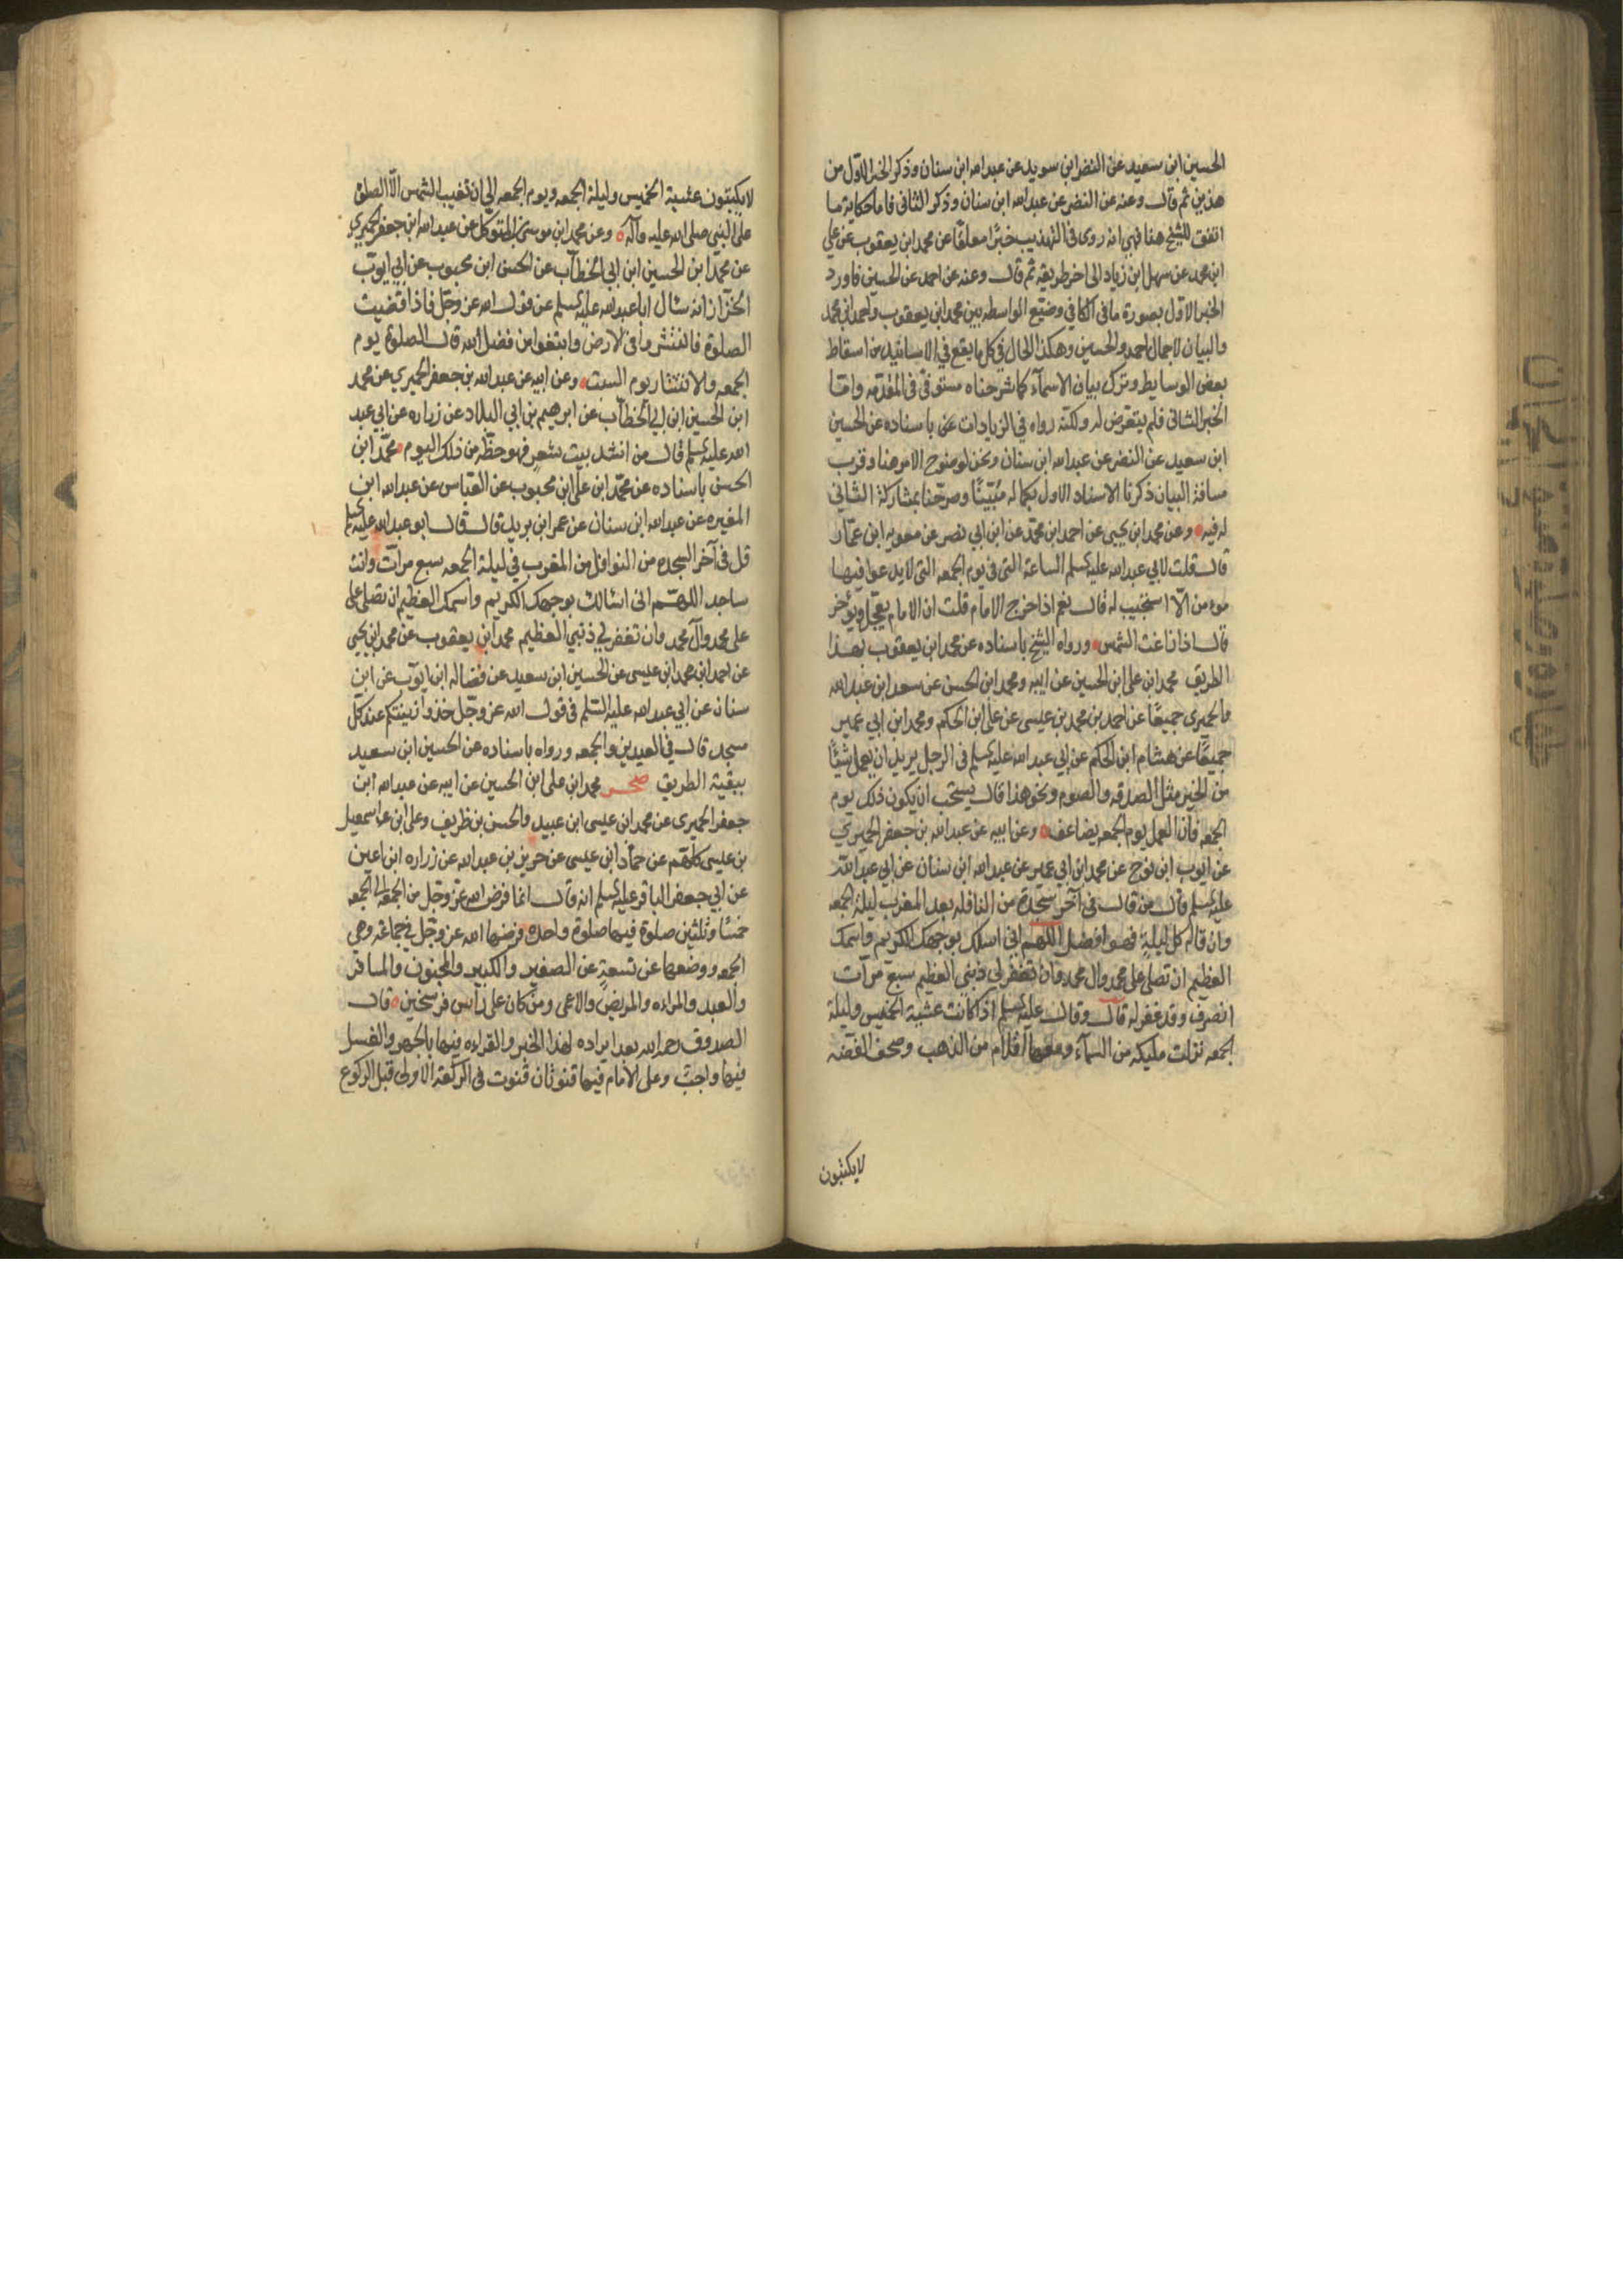 الحسين ابن سعيد عن النضر ابن سويد عن عبد الله ابن سنان وذكر الخبر الاول من
هذين ثم قال وعنه عن النضر عن عبد الله ابن سنان وذكر الثاني فاما حكاية ما
اتفق للشيخ هنا فهي انه روى في التهذيب خبرًا معلقًا عن محمد ابن يعقوب عن علي
ابن محمد عن سهل ابن زياد الى اخر طريقه ثم قال وعنه عن احمد عن الحسين فاورد
الخبر الاول بصورة ما في الكافي وضيّع الواسطه بين محمد ابن يعقوب واحمد ابن محمد
والبيان لاجمال احمد والحسين وهكذا الحال في كل ما يقع في الاسانيد من اسقاط
بعض الوسايط وترك بيان الاسمآء كما شرحناه مستوفى في المقدمه وامّا
الخبر الثاني فلم يتعرض له ولكنّه رواه في الزيادات عن باسناده عن الحسين
ابن سعيد عن النضر عن عبد الله ابن سنان ونحن لوضوح الامر هنا وقرب
مسافة البيان ذكرنا الاسناد الاول بكماله مُبيّنًا وصرحنا بمشاركة الثاني
له فيه وعن محمد ابن يحيى عن احمد ابن محمّد عن ابن ابي نصر عن معويه ابن عمّار
قال قلت لابي عبد الله عليه السلم الساعة التى في يوم الجمعه التى لا يدعوا فيها
مؤمن الّا استجيب له قال نعم اذا خرج الامام قلت ان الامام يعجّل ويؤخر
قال اذا زاغت الشمس ورواه الشيخ باسناده عن محمد ابن يعقوب بهذا
الطريق محمد ابن علي ابن الحسين عن ابيه ومحمد ابن الحسن عن سعد ابن عبد الله
والحميري جميعًا عن احمد بن محمد بن عيسى عن علي ابن الحكم ومحمد ابن ابي عمير
جميعًا عن هشام ابن الحكم عن ابي عبد الله عليه السلم في الرجل يريد ان يعمل شيئًا
من الخير مثل الصدقه والصوم ونحو هذا قال يستحب ان يكون ذلك يوم
الجمعه فان العمل يوم الجمعه يضاعف وعن ابيه عن عبد الله بن جعفر الحميري
عن ايوب ابن نوح عن محمد ابن ابي عمير عن عبد الله ابن سنان عن ابي عبد الله
عليه السلم قال من قال في آخر سجدة من النافله بعد المغرب ليلة الجمعه
وان قاله كل ليلةٍ فهو افضل اللهم اني اسئلك بوجهك الكريم واسمك
العظيم ان تصلي على محمد وال محمد وان تغفر لي ذنبي العظيم سبع مرآت
انصرف وقد غفر له قال وقال عليه السلم اذا كانت عشية الخميس وليلة
الجمعه نزلت مليكه من السمآء ومعها اقلام من الذهب وصحف الفضّه
لا يكتبون
لا يكتبون عشية الخميس وليلة الجمعه ويوم الجمعه الى ان تغيب الشمس الّا الصلوة
على النبي صلى الله عليه وآله وعن محمد ابن موسى بن المتوكل عن عبد الله ابن جعفر الحميري
عن محمد ابن الحسين ابن ابي الخطآب عن الحسن ابن محبوب عن ابي ايوب
الخزّاز انه سئال ابا عبد الله عليه السلم عن قول الله عز وجل فاذا قضيت
الصلوة فانتشروا في الارض وابتغوا من فضل الله قال الصلوة يوم
الجمعه والانتشار يوم السبت وعن ابيه عن عبد الله بن جعفر الحميري عن محمد
ابن الحسين ابن ابي الخطآب عن ابرهيم بن ابي البلاد عن زراره عن ابي عبد
الله عليه السلم قال من انشد بيت شعرٍ فهو حظّه من ذلك اليوم محمّد ابن
الحسن باسناده عن محمّد ابن علي ابن محبوب عن العبّاس عن عبد الله ابن
المغيره عن عبد الله ابن سنان عن عمر ابن يزيد قال قال ابو عبد الله عليه السلم
قل في آخر السجده من النوافل من المغرب في ليلة الجمعه سبع مرآت وانت
ساجد اللهّم انى اسئالك بوجهك الكريم واسمك العظيم ان تصلي على
على محمد وآل محمد وان تغفر لي ذنبي العظيم محمد ابن يعقوب عن محمد ابن يحيى
عن احمد ابن محمد ابن عيسى عن الحسين ابن سعيد عن فضاله ابن ايوب عن ابن
سنان عن ابي عبد الله عليه السّلم في قول الله عز وجّل خذوا زينتكم عند كلّ
مسجد قال في العيدين والجمعه ورواه باسناده عن الحسين ابن سعيد
ببقية الطريق صحر محمد ابن علي ابن الحسين عن ابيه عن عبد الله ابن
جعفر الحميري عن محمد ابن عيسى ابن عبيد والحسن بن ظريف وعلي ابن اسمعيل
بن عيسى كلّهم عن حمّاد ابن عيسى عن حريز بن عبد الله عن زراره ابن اعين
عن ابي جعفر الباقر عليه السلم انه قال انما فرض الله عزّ وجل من الجمعه الى الجمعه
خمسًا وثلثين صلوة فيها صلوة واحدة فرضها الله عز وجّل في جماعة وهي
الجمعه ووضعها عن تسعةٍ عن الصغير والكبير والمجنون والمسافر
والعبد والمراه والمريض والاعمى ومن كان على رأس فرسخين قال
الصدوق رحمه الله بعد ايراده لهذا الخبر والقراءه فيها بالجهر والغسل
فيها واجب وعلى الامام فيها قنوتان قنوت في الركعة الاولى قبل الركوع